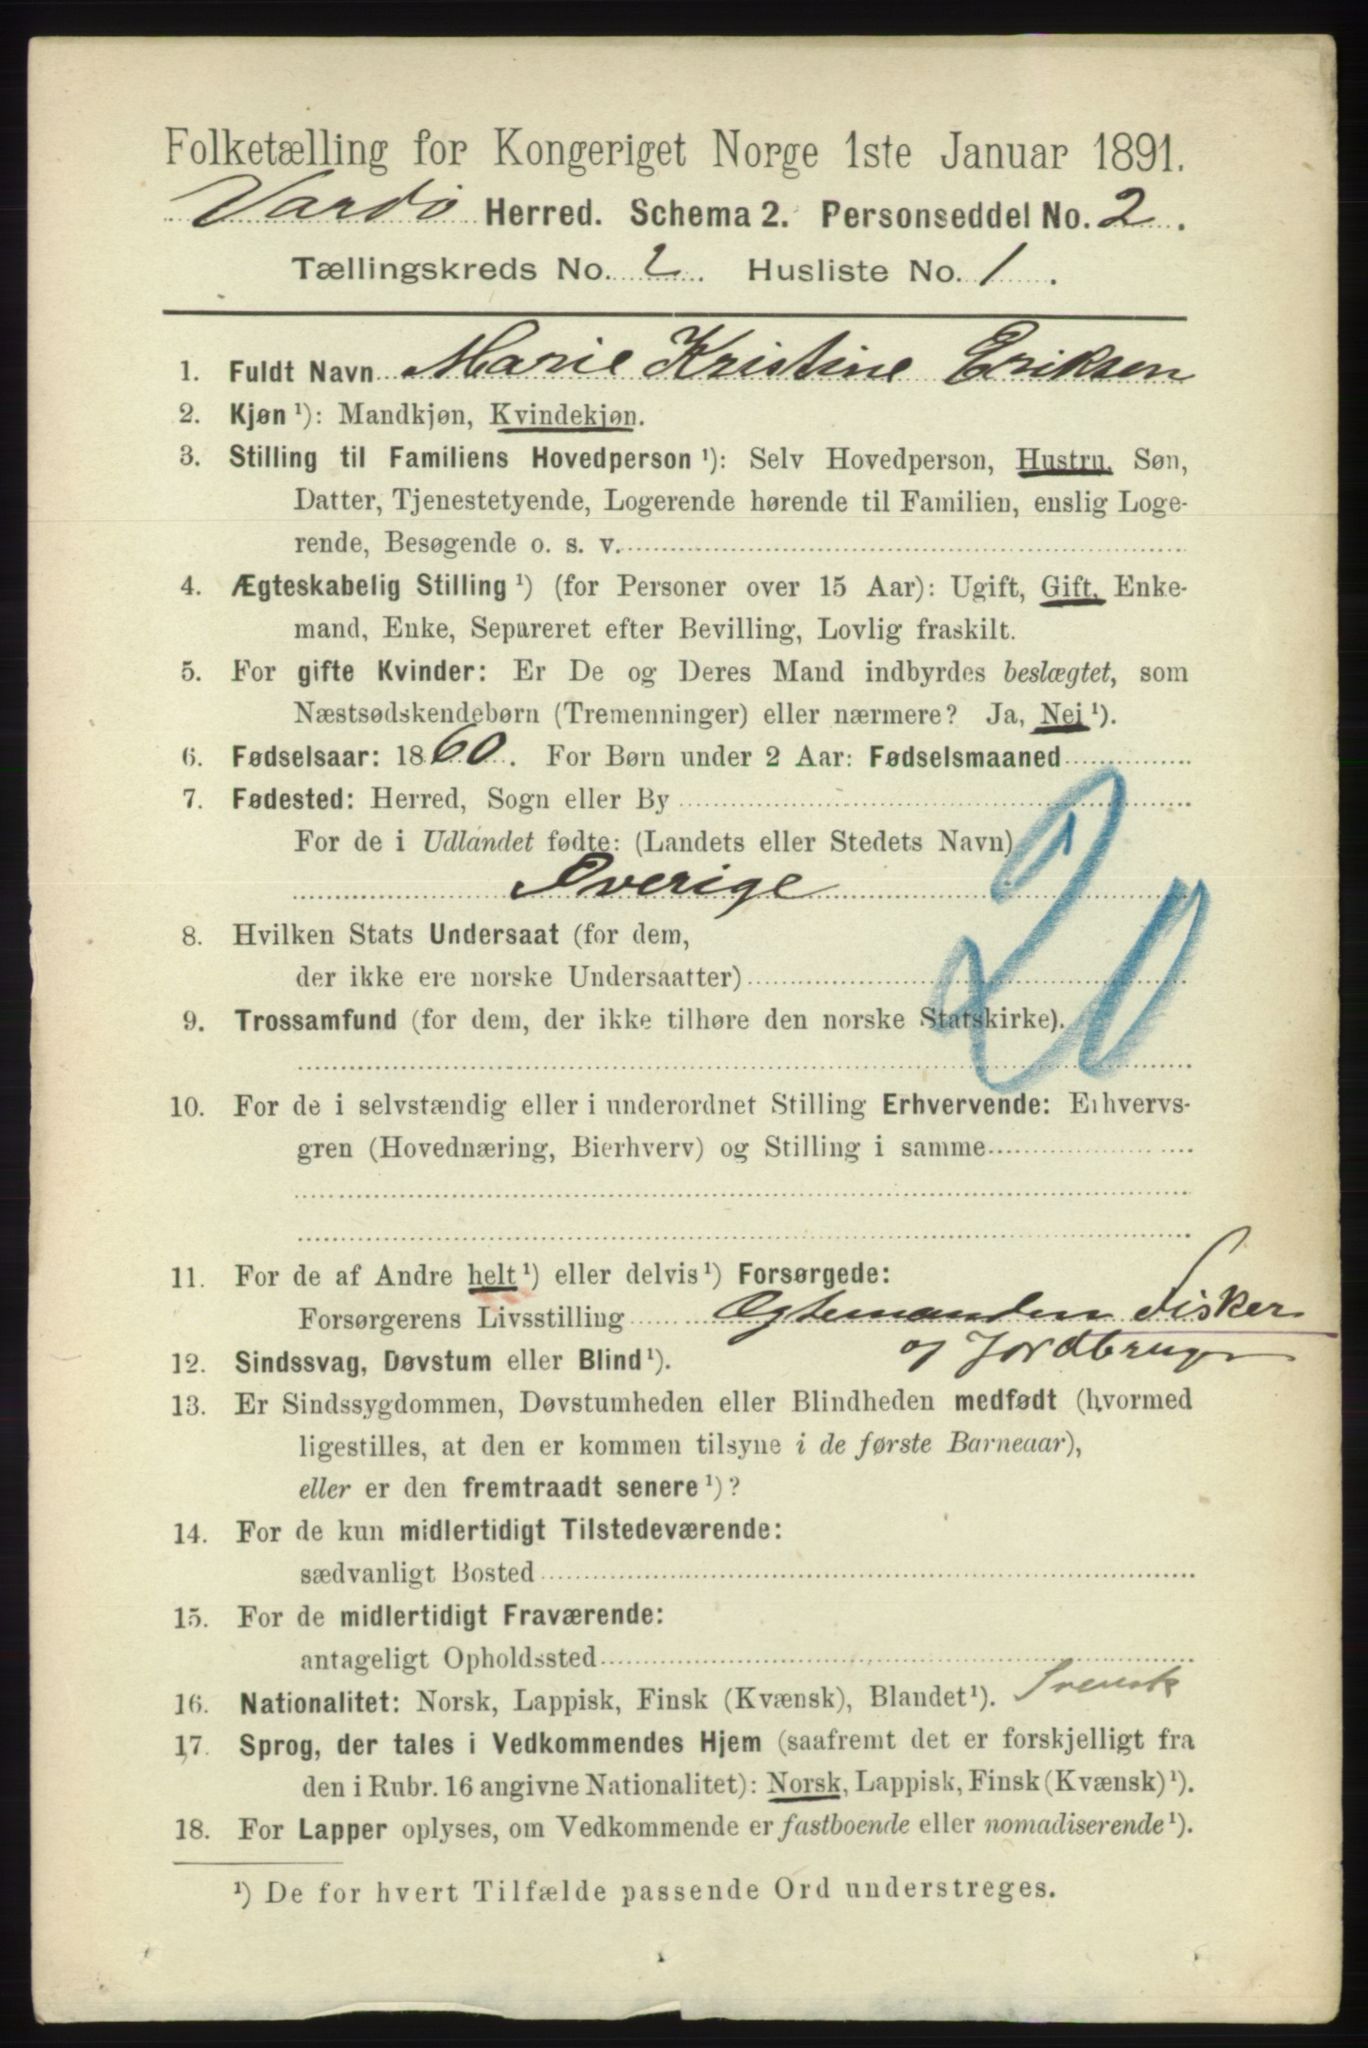 Folketælling for Kongeriget Norge 1ste Januar 1891.
Vardö Herred. Schema 2. Personseddel No. 2.
Tællingskreds No. 2. Husliste No. 1.
1. Fuldt Navn Marie Kristine Eriksen
2. Kjøn ¹): Mandkjøn, Kvindekjøn.
3. Stilling til Familiens Hovedperson ¹): Selv Hovedperson, Hustru, Søn,
Datter, Tjenestetyende, Logerende hørende til Familien, enslig Loge-
rende, Besøgende o. s. v.
4. Ægteskabelig Stilling ¹) (for Personer over 15 Aar): Ugift, Gift, Enke-
mand, Enke, Separeret efter Bevilling, Lovlig fraskilt.
5. For gifte Kvinder: Er De og Deres Mand indbyrdes beslægtet, som
Næstsødskendebørn (Tremenninger) eller nærmere? Ja, Nei ¹).
6. Fødselsaar: 1860. For Børn under 2 Aar: Fødselsmaaned
7. Fødested: Herred, Sogn eller By
For de i Udlandet fødte: (Landets eller Stedets Navn)
Sverige
20
8. Hvilken Stats Undersaat (for dem,
der ikke ere norske Undersaatter)
9. Trossamfund (for dem, der ikke tilhøre den norske Statskirke).
10. For de i selvstændig eller i underordnet Stilling Erhvervende: Erhvervs-
gren (Hovednæring, Bierhverv) og Stilling i samme
11. For de af Andre helt ¹) eller delvis ¹) Forsørgede:
Forsørgerens Livsstilling Ægtemanden Fisker
og Jordbruger
12. Sindssvag, Døvstum eller Blind ¹).
13. Er Sindssygdommen, Døvstumheden eller Blindheden medfødt (hvormed
ligestilles, at den er kommen tilsyne i de første Barneaar),
eller er den fremtraadt senere ¹)?
14. For de kun midlertidigt Tilstedeværende:
sædvanligt Bosted
15. For de midlertidigt Fraværende:
antageligt Opholdssted
16. Nationalitet: Norsk, Lappisk, Finsk (Kvænsk), Blandet ¹). Svensk
17. Sprog, der tales i Vedkommendes Hjem (saafremt det er forskjelligt fra
den i Rubr. 16 angivne Nationalitet): Norsk, Lappisk, Finsk (Kvænsk) ¹).
18. For Lapper oplyses, om Vedkommende er fastboende eller nomadiserende ¹).
¹) De for hvert Tilfælde passende Ord understreges.